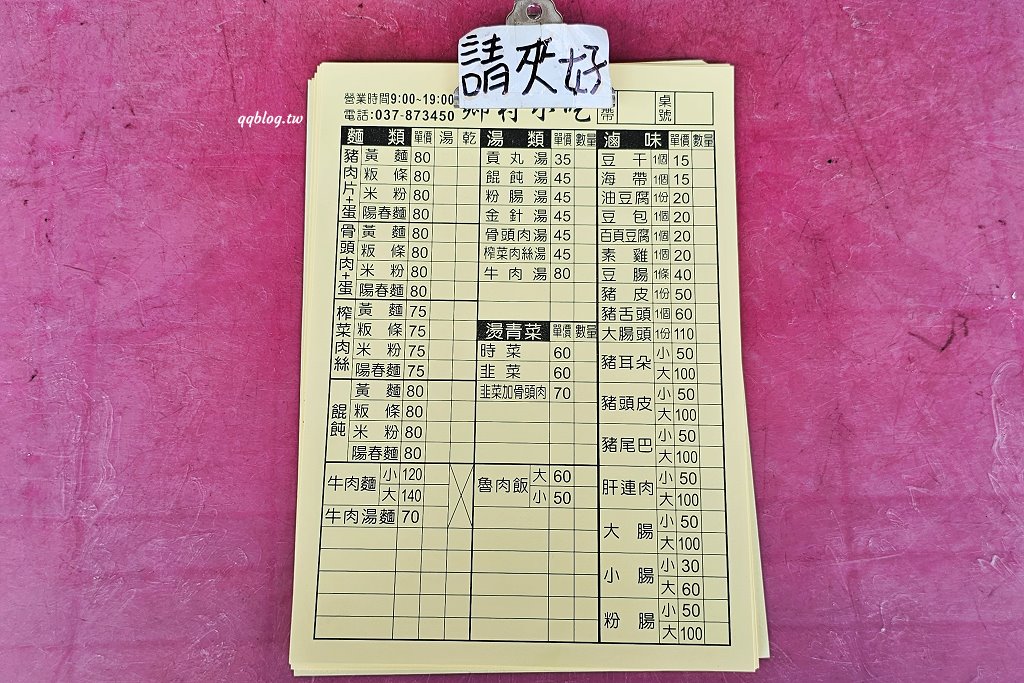 請夾好
qqblog.tw
營業時間9:00~19:00
電話:037-873450
桌號
麵類 單價 湯 乾
豬肉片+蛋
黃麵 80
粄條 80
米粉 80
陽春麵 80
骨頭肉+蛋
黃麵 80
粄條 80
米粉 80
陽春麵 80
榨菜肉絲
黃麵 75
粄條 75
米粉 75
陽春麵 75
餛飩
黃麵 80
粄條 80
米粉 80
陽春麵 80
牛肉麵 小 120
大 140
牛肉湯麵 70
湯類 單價 數量
貢丸湯 35
餛飩湯 45
粉腸湯 45
金針湯 45
骨頭肉湯 45
榨菜肉絲湯 45
牛肉湯 80
燙青菜 單價 數量
時菜 60
韭菜 60
韭菜加骨頭肉 70
魯肉飯 大 60
小 50
滷味 單價 數量
豆干 1個 15
海帶 1個 15
油豆腐 1份 20
豆包 1個 20
百頁豆腐 1個 20
素雞 1個 20
豆腸 1條 40
豬皮 1份 50
豬舌頭 1個 60
大腸頭 1份 110
豬耳朵 小 50
大 100
豬頭皮 小 50
大 100
豬尾巴 小 50
大 100
肝連肉 小 50
大 100
大腸 小 50
大 100
小腸 小 30
大 60
粉腸 小 50
大 100